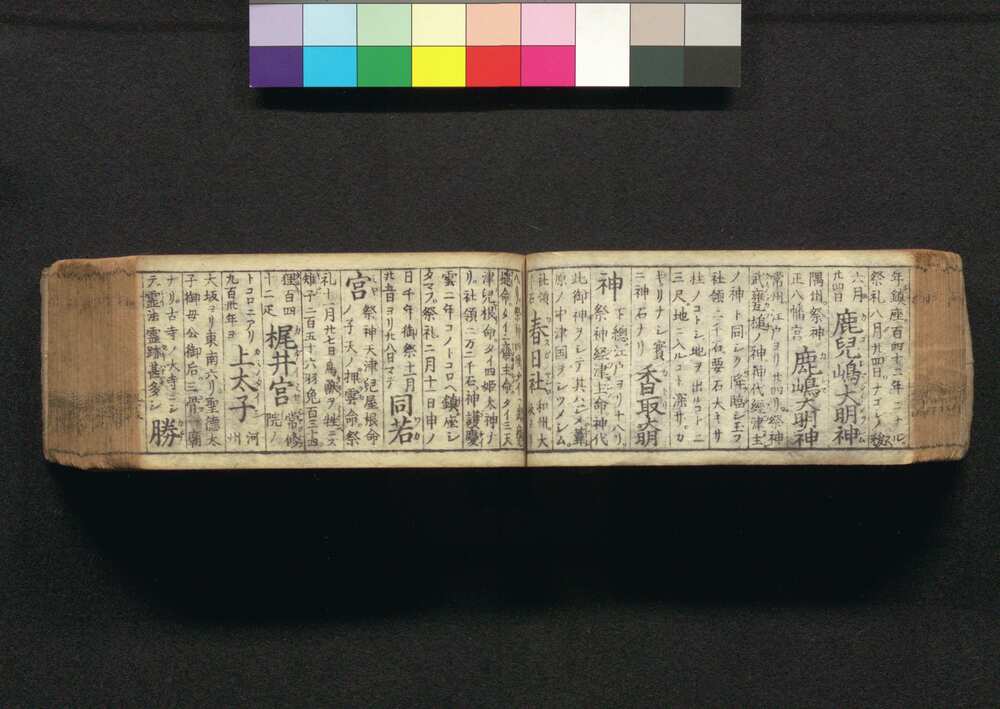 年鎮座百四十三年ニナル
祭礼八月廿四日ナコシノ祭
六月
廿四日 鹿兒嶋大明神
隅州祭神
正八幡宮 鹿嶋大明神
常州江戸ヨリ廿四リ祭神
武甕槌ノ神神代經津主
ノ神ト同シク降臨シ玉フ
社領二千石要石大キサ
杜ノコトシ地ヲ出ルコト二
三尺地ニ入ルコト深サカ
キリナシ實
ニ神石ナリ 香取大明
神 下總江戸ヨリ十八リ
祭神經津主命神代
此御神ヲシテ其ハシメ葦
原ノ中津国ヲウツシム
社領
春日社 和州大
津兒屋根命タイ四姫大神ナ
リ社領二万二千石神護慶
雲二年コノトコロヘ鎮座シ
タマフ祭礼二月十一日申ノ
日千午御祭十一月
廿六日ヨリ廿八日マテ 同若
宮 祭神天津兒屋根命
ノ子天ノ押雲命祭
礼十一月廿七日鳥獸ヲ牲ニス
雉子二百五十六羽兎百三十四
狸百四
十二疋 梶井宮 常修
院ノ
トコロニアリ
九百卅年ヨ 上太子 河
州
大坂ヨリ東南六リ聖德太
子御母公御后三骨一廟
ナリ古寺ノ大寺ニシ
テ霊法霊跡甚多シ 勝